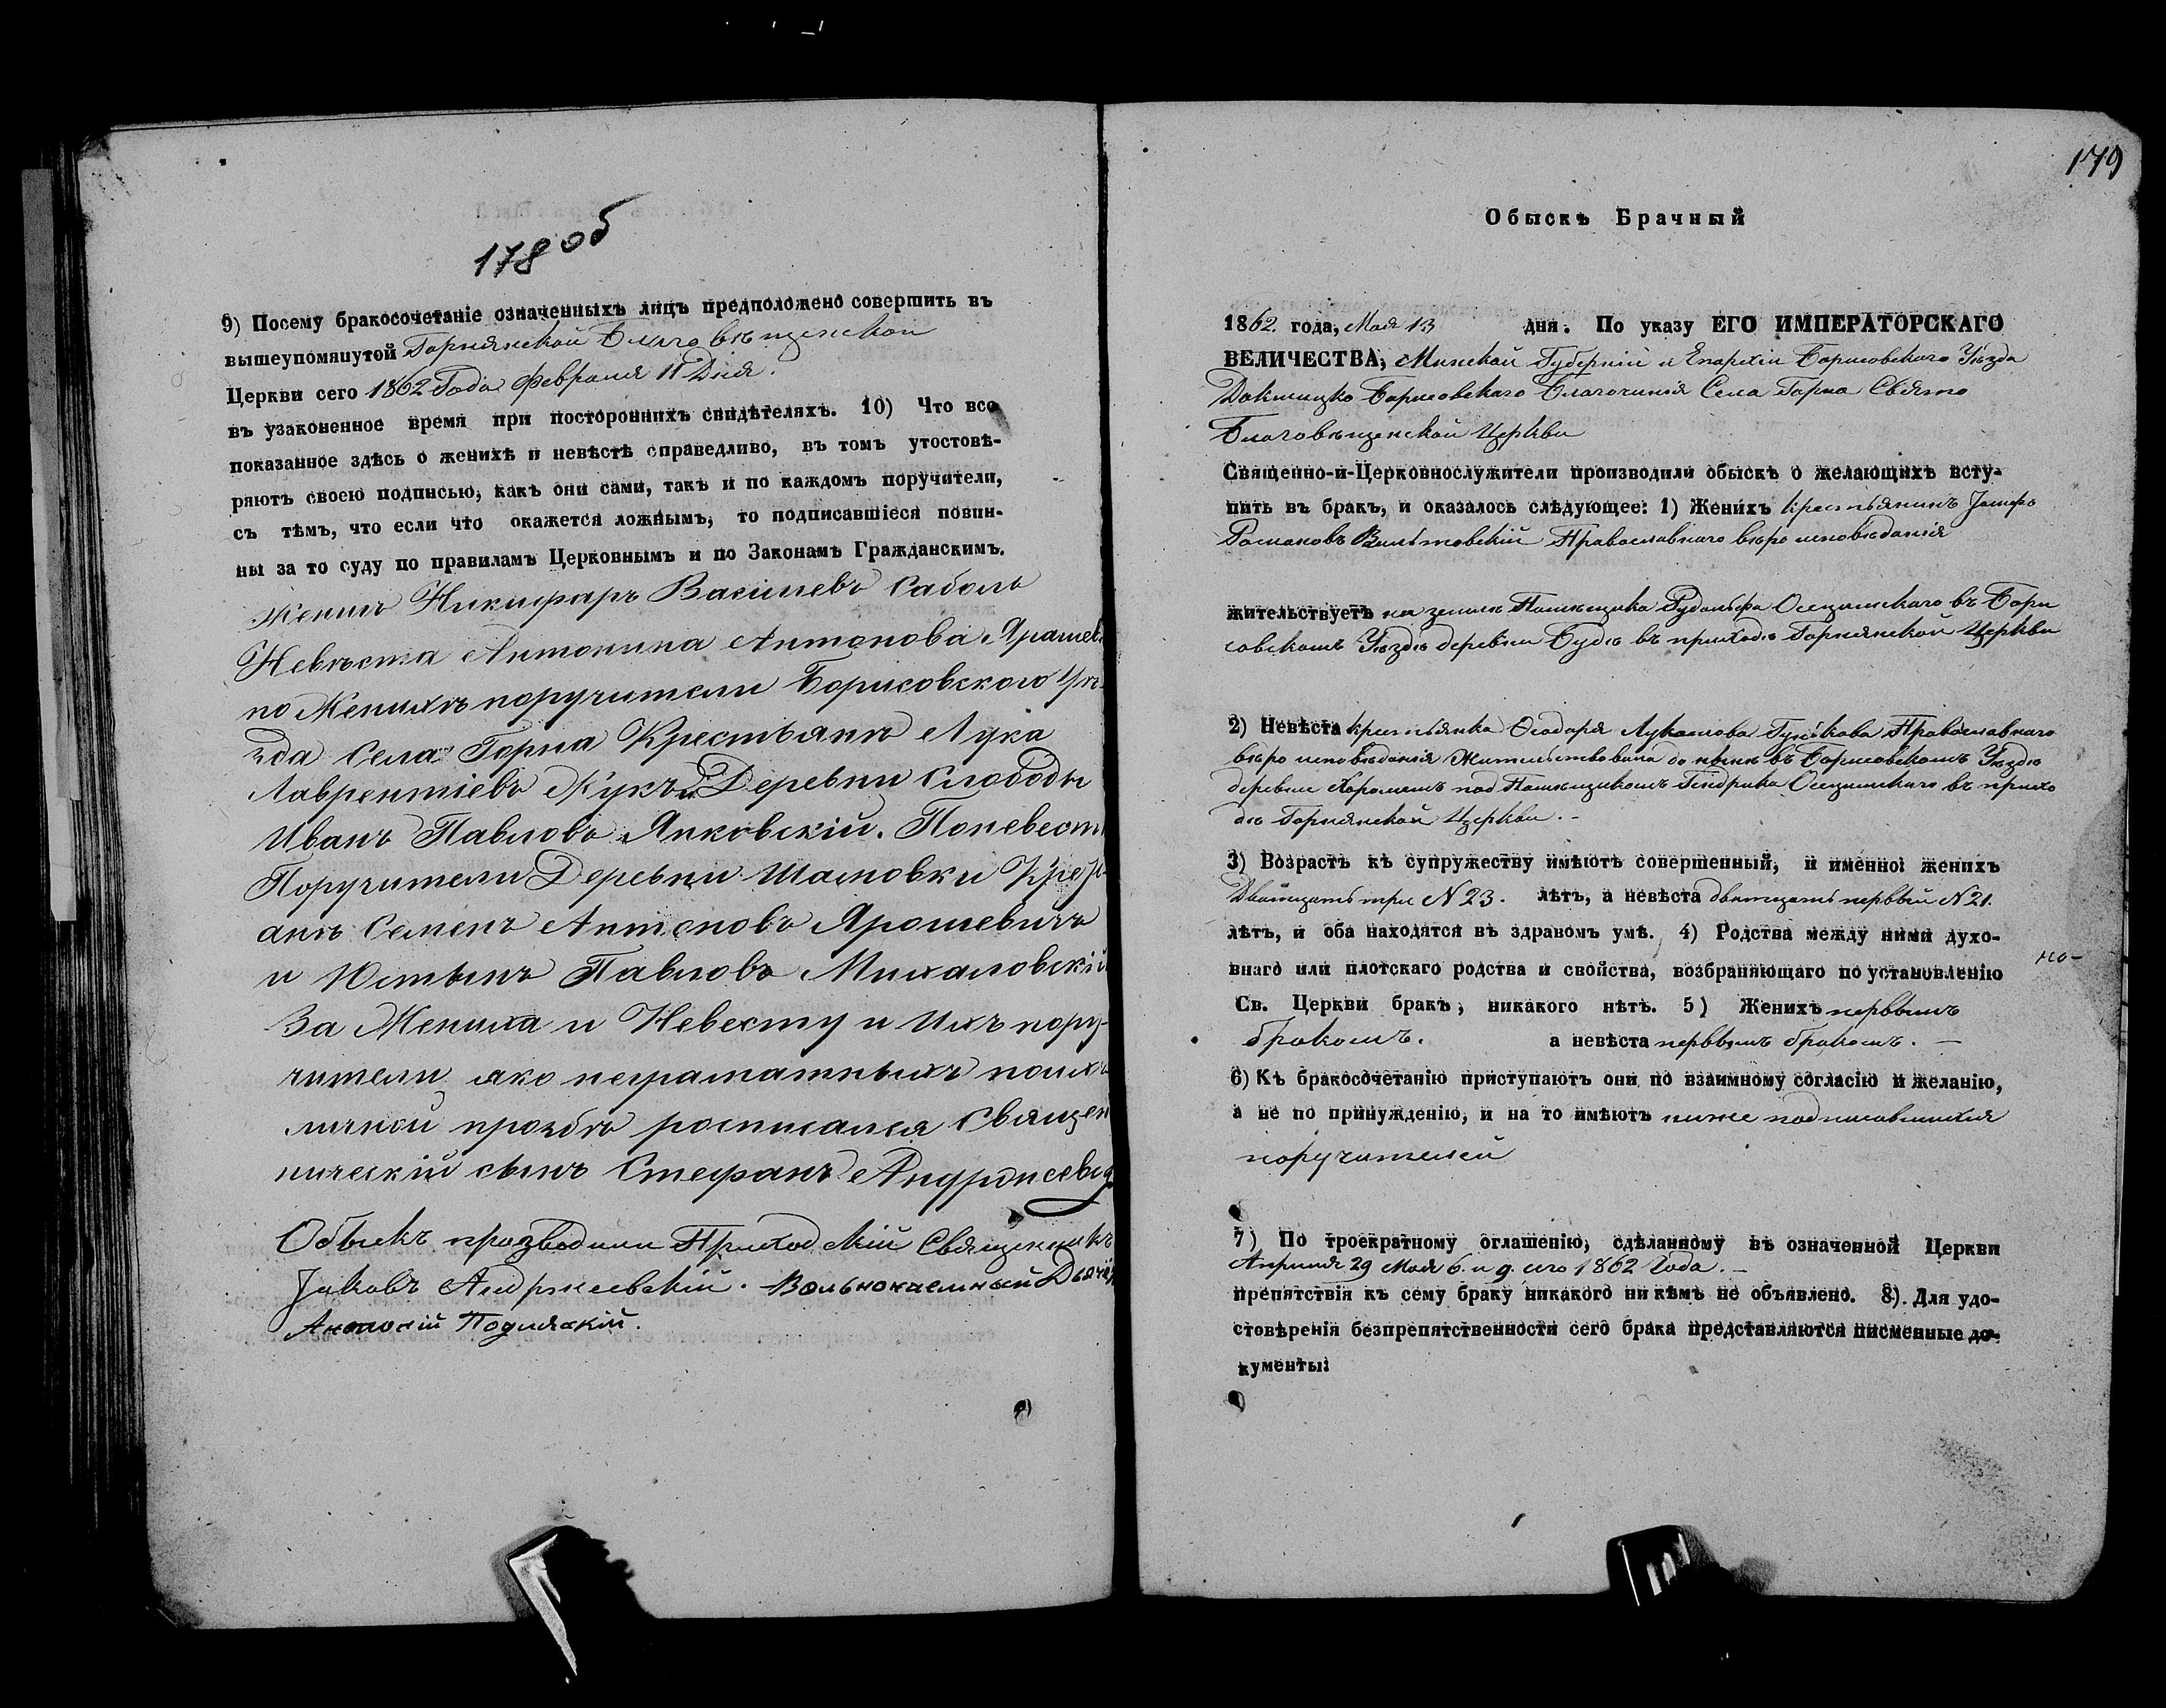 178 об
9) Посему бракосочетаніе означенныхъ лицъ предположено совершить въ
вышеупомянутой Горнянской Благовѣщенской
Церкви сего 1862 Года Февраля 11 Дня.
въ узаконенное время при постороннихъ свидѣтеляхъ. 10) Что все
показанное здѣсь о женихѣ и невѣстѣ справедливо, въ томъ утостовѣ-
ряютъ своею подписью, какъ они сами, такъ и по каждомъ поручители,
съ тѣмъ, что если что окажется ложнымъ, то подписавшіеся повин-
ны за то суду по правиламъ Церковнымъ и по Законамъ Гражданскимъ.
Жених Никифаръ Васильевъ Саболь
Невѣста Антонина Антонова Ярашев
по Женихѣ поручители Борисовского Уѣ-
зда Села Горна Крестьянъ Лука
Лаврентіевъ Жукъ и Деревни Слободы
Иванъ Павловъ Янковскій. Поневест
Поручители Деревни Шамовки Крест-
анъ Семенъ Антоновъ Ярошевичъ
и Юстынъ Павловъ Михаловскій
За Жениха и Невесту и Ихъ пору-
чители яко неграматныхъ поихъ
личной прозбѣ росписался Священ
ническій сынъ Стефанъ
Обыскъ празводили Приходскій Священникъ
Іаковъ Андржеевскій. Вольнонаемный Дьячекъ
Антоній Подляскій.
179
Обыскъ Брачный
1862. года, Мая 13 дня. По указу ЕГО ИМПЕРАТОРСКАГО
ВЕЛИЧЕСТВА, Минской Губерніи и Епархіи Борисовского Уѣзда
Докшицко Борисовскаго Благочинія Села Горна Свято
Благовѣщенской Церкви
Священно-и-Церковнослужители производили обыскъ о желающихъ всту-
пить въ бракъ, и оказалось слѣдующее: 1) Женихъ крестьянинъ
Романовъ Православнаго вѣро исповѣданія
жительствуетъ на земли Помѣщика Рудольфа въ Бори
совскомъ Уѣздѣ деревни Будѣ въ приходѣ Горнянской Церкви
2) Невѣста крестьянка Ѳеодора Лукашова Православнаго
вѣро исповѣданія Жительствовала до нынѣ въ Борисовскомъ Уѣздѣ
деревне под Помѣщикомъ Гендрика въ прихо
дѣ Горнянской Церкви. -
3) Возрастъ къ супружеству имѣютъ совершенный, и именно: женихъ
Двадцать три N 23. лѣтъ, а невѣста двадцать первый N 21.
лѣтъ, и оба находятся въ здравомъ умѣ. 4) Родства между ними духо-
внаго или плотскаго родства и свойства, возбраняющаго по установленію
Св. Церкви бракъ, никакого нѣтъ. 5) Женихъ первымъ
бракомъ. а невѣста первымъ бракомъ. -
6) Къ бракосочетанію приступаютъ они по взаимному согласію и желанію,
а не по принужденію, и на то имѣютъ ниже подписавшихся
поручителей
7) По троекратному оглашенію, сдѣланному въ означенной Церкви
Апреля 29 Мая 6. и 9. сего 1862 Года. -
препятствія къ сему браку никакого ни кѣмъ не объявлено. 8). Для удо-
стовѣренія безпрепятственности сего брака представляются писменные до-
кументы: